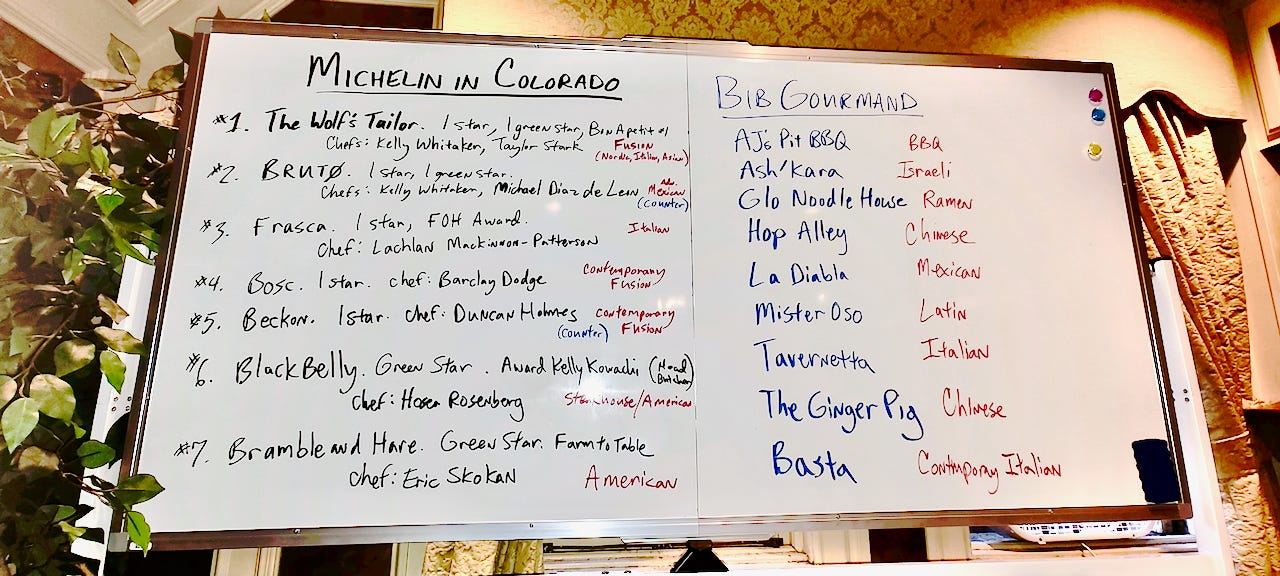 MICHELIN IN COLORADO
#1. The Wolf's Tailor. 1 star, 1 green star, Bon Apetit #1
Chefs: Kelly Whitaker, Taylor Stark FUSION
(Nordic, Italian, Asian)
#2. BRUTØ. 1 star, 1 green star.
Chefs: Kelly Whitaker, Michael Diaz de Leon Mexican
(counter)
#3. Frasca. 1 star, FOH Award. Italian
Chef: Lachlan Mackinnon-Patterson
#4. Bosc. 1 star. chef: Barclay Dodge contemporary
Fusion
#5. Beckon. 1 star. chef: Duncan Holmes contemporary
(counter) Fusion
#6. BlackBelly. Green Star. Award Kelly Kowachi (Head
Butcher)
chef: Hosea Rosenberg Steakhouse/American
#7. Bramble and Hare. Green Star. Farm to Table
chef: Eric Skokan American
BIB GOURMAND
AJ's Pit BBQ BBQ
Ash'kara Israeli
Glo Noodle House Ramen
Hop Alley Chinese
La Diabla Mexican
Mister Oso Latin
Tavernetta Italian
The Ginger Pig Chinese
Basta Contmporay Italian